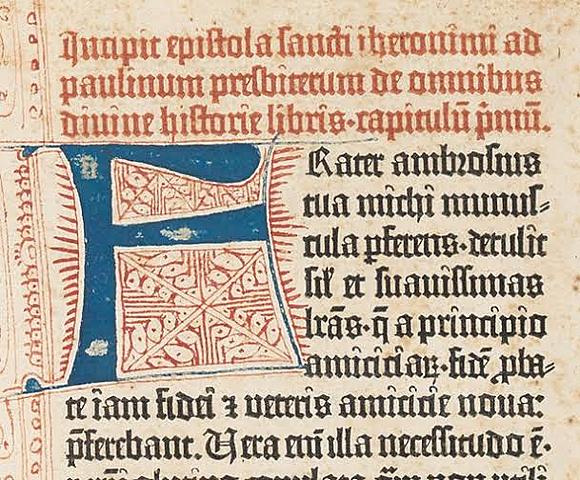 Incipit epistola sancti iheronimi ad
paulinum presbiterum de omnibus
divine historie libris·capitulū p̄mū.
FRater ambrosius
tua michi munus-
cula p̄ferens·detulit
sił et suavissimas
lr̄as·q̄ a principio
amiciciaꝝ·fidē ꝓba-
te iam fidei ⁊ veteris amicicie nova:
p̄ferebant. Vera em̄ illa necessitudo ē·